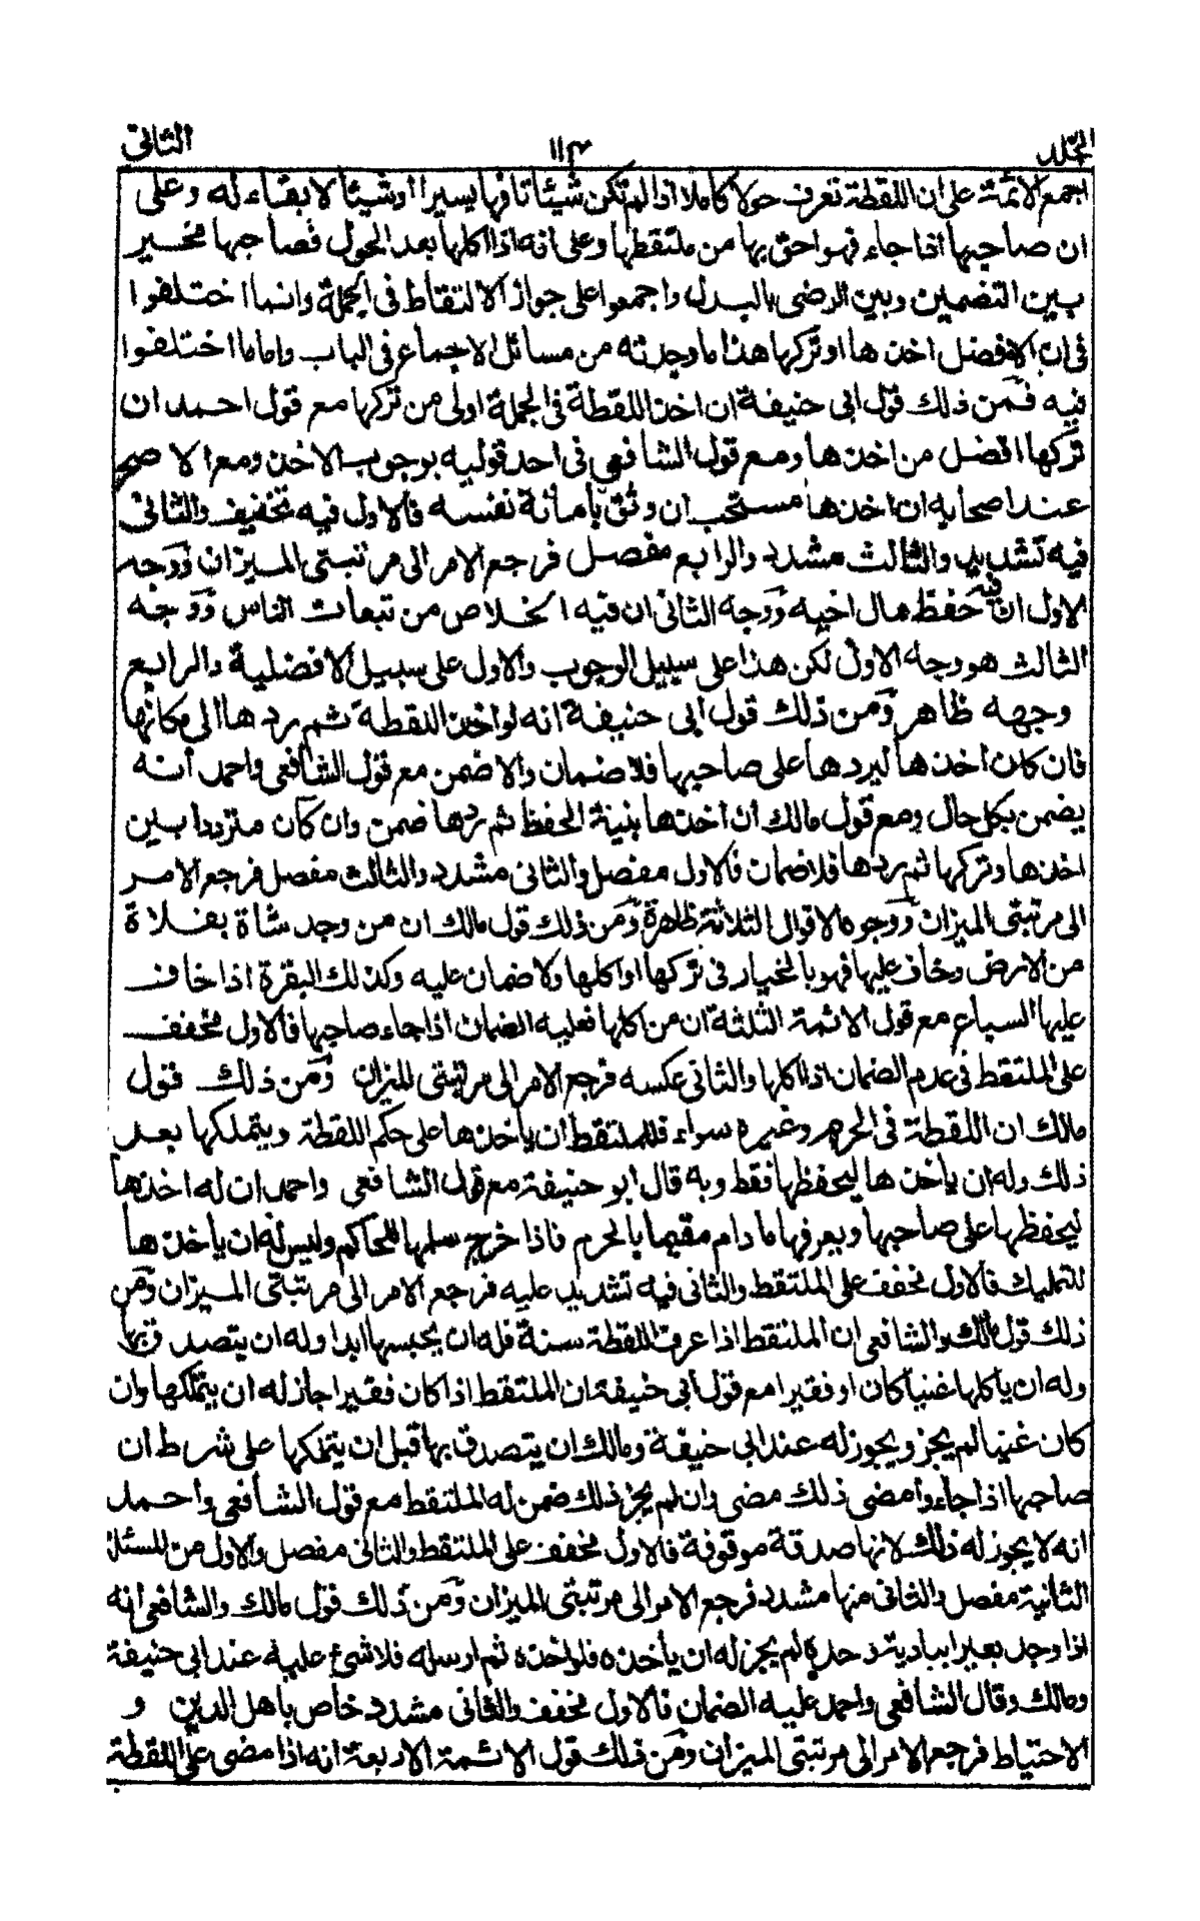 المجلد ١١٣ الثانى
اجمع الائمة على ان اللقطة تعرف حولا كاملا اذا لم تكن شيئا تافها يسيرا أو شيئا لا بقاء له وعلى
ان صاحبها اذا جاء فهو احق بها من ملتقطها وعلى انه اذا اكلها بعد الحول فصاحبها مخير
بين التضمين وبين الرضى بالبدل واجمعوا على جواز الالتقاط فى الجملة وانما اختلفوا
فى ان الافضل اخذها او تركها هذا ما وجدته من مسائل الاجماع فى الباب واما ما اختلفوا
فيه فمن ذلك قول ابى حنيفة ان اخذ اللقطة فى الجملة اولى من تركها مع قول احمد ان
تركها افضل من اخذها ومع قول الشافعى فى احد قوليه بوجوب الاخذ ومع الاصح
عند اصحابه ان اخذها مستحب ان وثق بأمانة نفسه فالاول فيه تخفيف والثانى
فيه تشديد والثالث مشدد والرابع مفصل فرجع الامر الى مرتبتى الميزان ووجه
الاول ان فيه حفظ مال اخيه ووجه الثانى ان فيه الخلاص من تبعات الناس ووجه
الثالث هو وجه الاول لكن هذا على سبيل الوجوب والاول على سبيل الافضلية والرابع
وجهه ظاهر ومن ذلك قول ابى حنيفة انه لو اخذ اللقطة ثم ردها الى مكانها
فان كان أخذها ليردها على صاحبها فلا ضمان والا ضمن مع قول الشافعى واحمد أنه
يضمن بكل حال ومع قول مالك ان أخذها بنية الحفظ ثم ردها ضمن وان كان مترددا بين
اخذها وتركها ثم ردها فلا ضمان فالاول مفصل والثانى مشدد والثالث مفصل فرجع الامر
الى مرتبتى الميزان ووجوه الاقوال الثلاثة ظاهرة ومن ذلك قول مالك ان من وجد شاة بفلاة
من الارض وخاف عليها فهو بالخيار فى تركها او اكلها ولا ضمان عليه وكذلك البقرة اذا خاف
عليها السباع مع قول الائمة الثلثة ان من اكلها فعليه الضمان اذا جاء صاحبها فالاول مخفف
على الملتقط فى عدم الضمان اذا اكلها والثانى عكسه فرجع الامر الى مرتبتى الميزان ومن ذلك قول
مالك ان اللقطة فى الحرم وغيره سواء فللملتقط ان يأخذها على حكم اللقطة ويتملكها بعد
ذلك وله ان يأخذها ليحفظها فقط وبه قال ابو حنيفة مع قول الشافعى واحمد ان له اخذها
ليحفظها على صاحبها ويعرفها ما دام مقيما بالحرم فاذا خرج سلمها للحاكم وليس له ان يأخذها
للتمليك فالاول مخفف على الملتقط والثانى فيه تشديد عليه فرجع الامر الى مرتبتى الميزان ومن
ذلك قول مالك والشافعى ان الملتقط اذا عرف اللقطة سنة فله ان يحبسها ابدا وله ان يتصدق بها
وله ان يأكلها غنيا كان او فقيرا مع قول أبى حنيفة ان الملتقط اذا كان فقيرا جاز له ان يتملكها وان
كان غنيا لم يجز ويجوز له عند ابى حنيفة ومالك ان يتصدق بها قبل ان يتملكها على شرط ان
صاحبها اذا جاء وأمضى ذلك مضى وان لم يجز ذلك ضمن له الملتقط مع قول الشافعى واحمد
انه لا يجوز له ذلك لانها صدقة موقوفة فالاول مخفف على الملتقط والثانى مفصل والاول من المسئلة
الثانية مفصل والثانى منها مشدد فرجع الامر الى مرتبتى الميزان ومن ذلك قول مالك والشافعى انه
اذا وجد بعيرا ببادية وحده لم يجز له ان يأخذه فلو اخذه ثم ارسله فلا شئ عليه عند ابى حنيفة
ومالك وقال الشافعى واحمد عليه الضمان فالاول مخفف والثانى مشدد خاص باهل الدين و
الاحتياط فرجع الامر الى مرتبتى الميزان ومن ذلك قول الائمة الاربعة انه اذا مضى على اللقطة